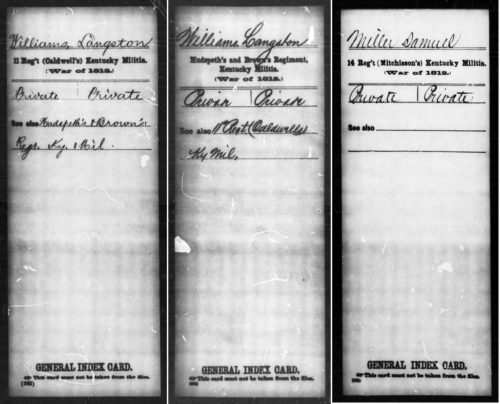 Williams, Langston
11 Reg't (Caldwell's) Kentucky Militia.
(War of 1812.)
Private | Private
See also Hudspeth's & Brown's
Regt. Ky. Mil.
GENERAL INDEX CARD.
This card must not be taken from the files.
Williams, Langston
Hudspeth's and Brown's Regiment,
Kentucky Militia.
(War of 1812.)
Private | Private
See also 11 Regt (Caldwell's)
Ky Mil.
GENERAL INDEX CARD.
This card must not be taken from the files.
Miller Samuel
14 Reg't (Mitchisson's) Kentucky Militia.
(War of 1812.)
Private | Private.
See also
GENERAL INDEX CARD.
This card must not be taken from the files.